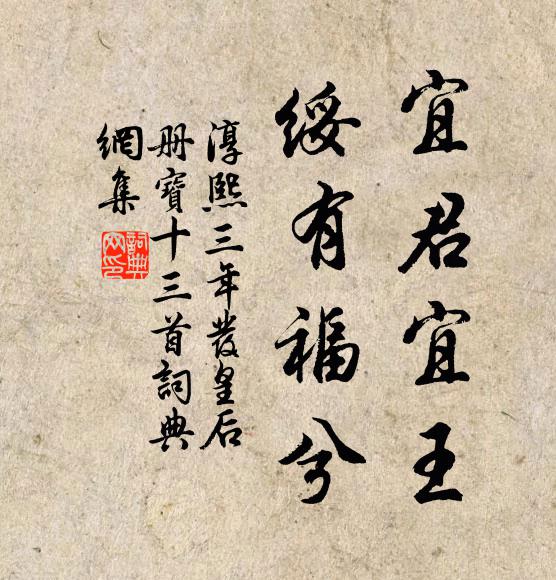 宜君宜王
綏有福兮
淳熙三年發皇后
册寶十三首詞典
網集
詞典網印